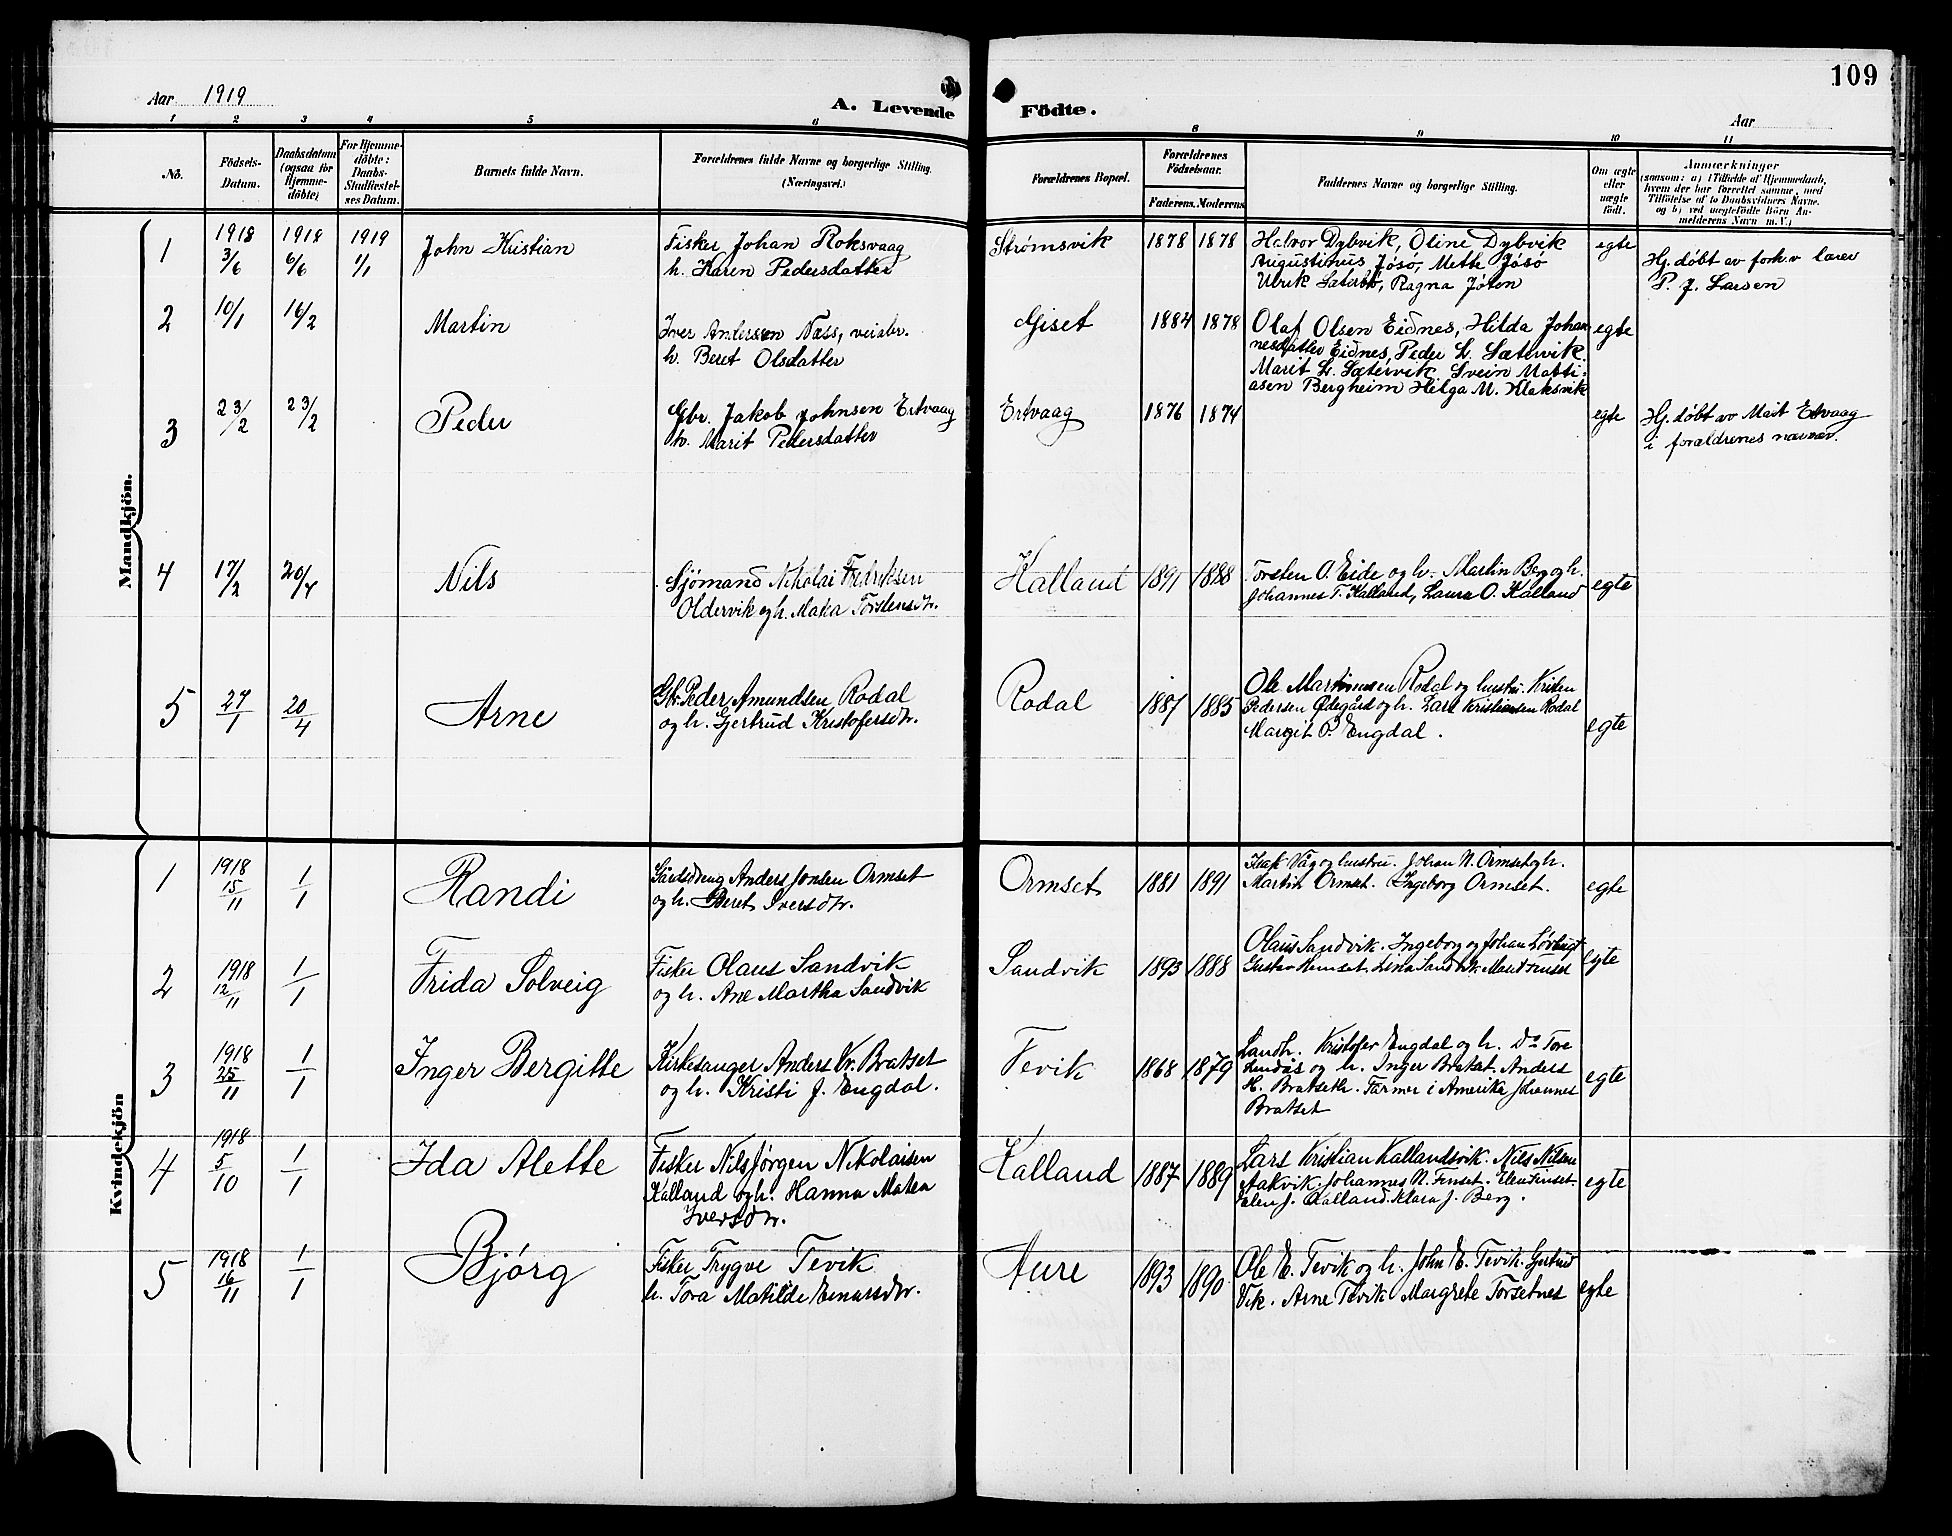 109
Aar 1919
A. Levende Födte.
Aar
1 2 3 4 5 6 8 9 10 11
No.
Födsels-Datum.
Daabsdatum (ogsaa for Hjemme-döbte)
For Hjemme-döbte: Daabs-Stadfæstel-ses Datum.
Barnets fulde Navn.
Forældrenes fulde Navne og borgerlige Stilling. (Næringsvei.)
Forældrenes Bopæl.
Forældrenes Födselsaar.
Faderens. Moderens.
Faddernes Navne og borgerlige Stilling.
Om ægte eller uægte födt.
Anmærkninger
(saasom: a) i Tilfælde af Hjemmedaab,
hvem der har forrettet samme, med
Tilföielse af to Daabsvidners Navne.
og b) ved uægtefödte Börn An-
melderens Navn m. V.)
Mandkjön.
1 1918 3/6 1918 6/6 1919 1/1 John Kristian
Fisker Johan Roksvaag
h. Karen Pedersdatter
Strømsvik 1878 1878
Halvor Dybvik, Oline Dybvik
Augustinus Jøsø, Mette Jøsø
Ulrik, Ragna
egte
Hj. døbt av forh.v lærer
P. J. Larsen
2 10/1 16/2 Martin
Iver Anderssen Næss, veiarb.
h. Beret Olsdatter
Giset 1884 1878
Olaf Olsen Eidnes, Hilda Johan
nesdatter Eidnes, Peder L. Sætervik.
Marit L. Sætervik, Svein Matti-
asen Bergheim Helga M. Klaksvik
egte
3 23/2 23/2 Peder
Gbr. Jakob Johnsen Ertvaag
h. Marit Pedersdatter
Ertvaag 1876 1874
egte
Hj. døbt av Marit Ertvaag
i forældrenes nærvær.
4 17/2 20/4 Nils
Sjömand Nikolai Fredriksen
Oldervik og h. Maka Torstensdtr.
Kalland 1891 1888
Torsten O. Eide og h. Martin Berg og h.
Johannes T. Kalland, Laura O. Kalland
egte
5 27/1 20/4 Arne
Gbr. Peder Amundsen Rodal
og h. Gjertrud Kristofersdtr.
Rodal 1887 1885
Ole Martinussen Rodal og hustru. Kristen
Pedersen Ødegård og h. Lars Kristiansen Rodal
Margit P. Engdal.
egte
Kvindekjön
1 1918 15/11 1/1 Randi
Gårddreng Anders Jonsen Ormset
og h. Beret Iversdtr.
Ormset 1881 1891
Isak Våg og hustru. Johan N. Ormset og h.
Martin Ormset. Ingeborg Ormset.
egte
2 1918 12/11 1/1 Frida Solveig
Fisker Olaus Sandvik
og h. Ane Martha Sandvik
Sandvik 1893 1888
Olaus Sandvik. Ingeborg og Johan
Gustav. Lina Sandvik
egte
3 1918 25/11 1/1 Inger Bergitte
Kirkesanger Anders Kr. Bratset
og h. Kristi J. Engdal.
Tevik 1868 1879
Landh. Kristofer Engdal og h. Do Tore
og h. Inger Bratset. Anders
H. Bratseth. Farmer i Amerika Johannes
Bratset
egte
4 1918 5/10 1/1 Ida Alette
Fisker Nils Jørgen Nikolaisen
Kalland og h. Hanna Maka
Iversdtr.
Kalland 1887 1889
Lars Kristian Kallandsvik. Nils Nilsen
Aakvik. Johannes N. Finset. Elen Finset
Elen J. Kalland. Klara J. Berg.
egte
5 1918 16/11 1/1 Bjørg
Fisker Trygve Tevik
h. Tora Matilde Einarsdtr.
Aure 1893 1890
Ole E. Tevik og h. John E. Tevik. Gjertrud
Vik. Arne Tevik Margrete Torsetnes
egte